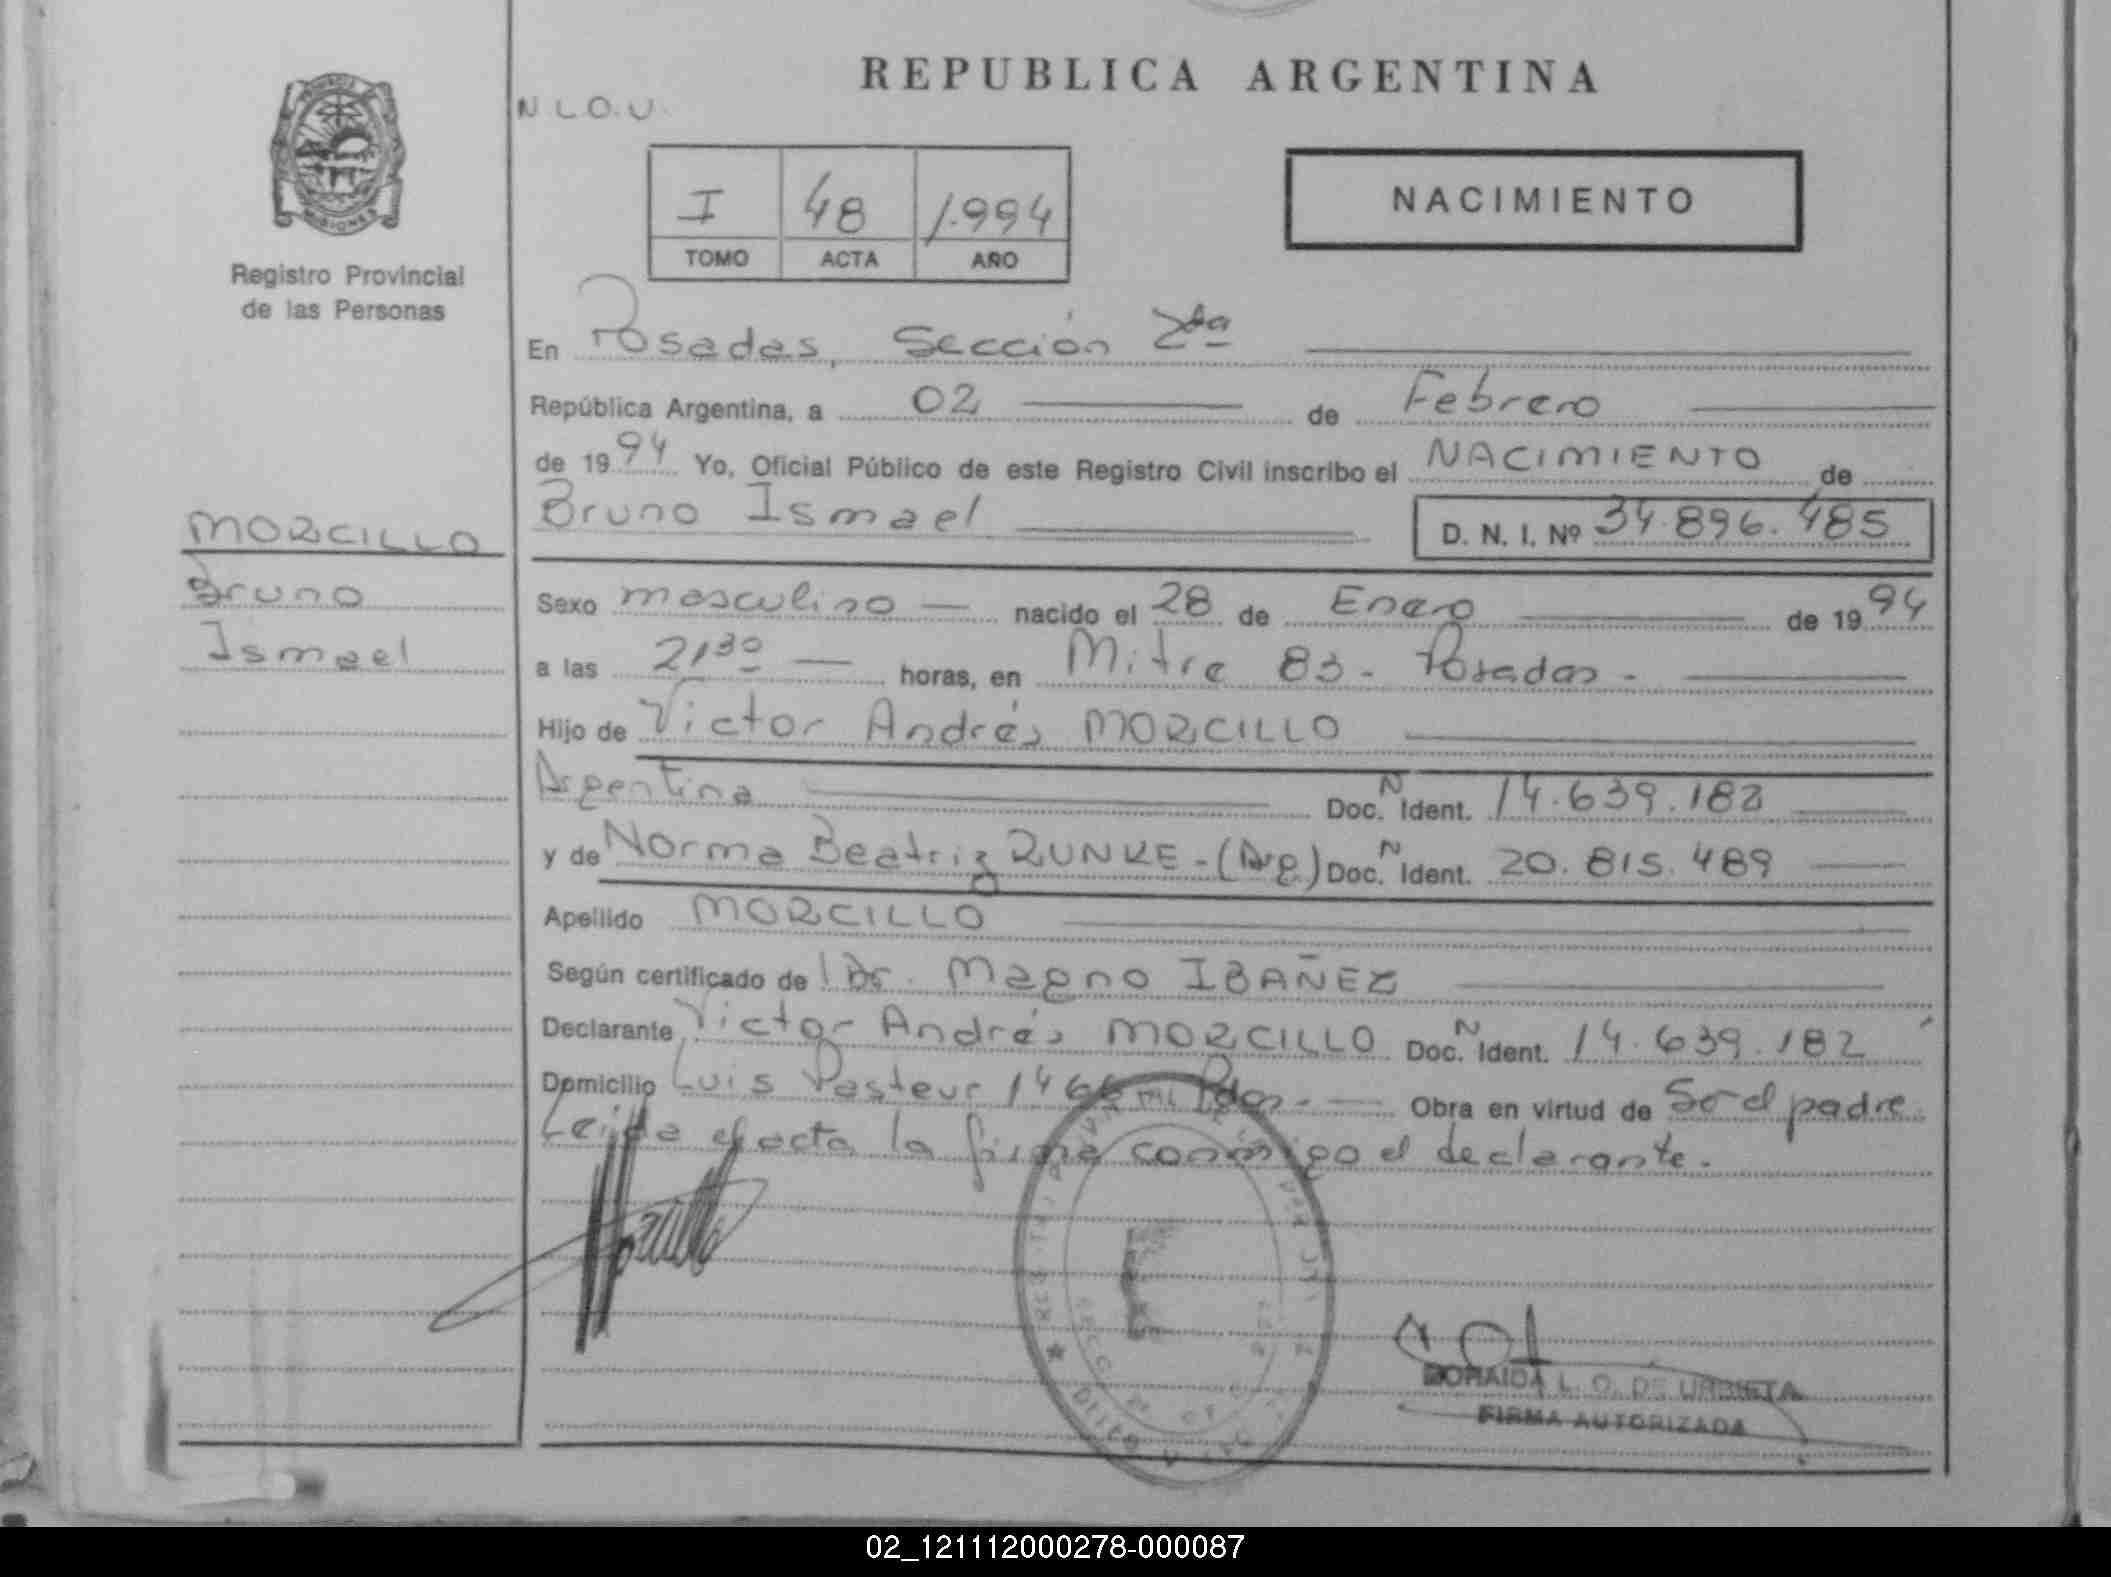 REPUBLICA ARGENTINA
N L.O.U.
I 48 1.994
TOMO ACTA AÑO
NACIMIENTO
MISIONES
Registro Provincial
de las Personas
En Posadas, Sección 2da
República Argentina, a 02 de Febrero
de 1994 Yo, Oficial Público de este Registro Civil inscribo el NACIMIENTO de
Bruno Ismael D. N. I. Nº 34.896.485
MORCILLO
Bruno
Ismael
Sexo masculino nacido el 28 de Enero de 1994
a las 21 30 horas, en Mitre 83 - Posadas -
Hijo de Victor Andrés MORCILLO
Argentina Doc. N Ident. 14.639.182
y de Norma Beatriz RUNKE - (Arg) Doc. N Ident. 20.815.489
Apellido MORCILLO
Según certificado de l Dr. Magno IBAÑEZ
Declarante Victor Andrés MORCILLO Doc. N Ident. 14.639.182
Domicilio Luis Pasteur 1466 Pdas - Obra en virtud de Ser el padre
Leida el acta la firma conmigo el declarante.
L. O. DE URBIETA
FIRMA AUTORIZADA
02_121112000278-000087